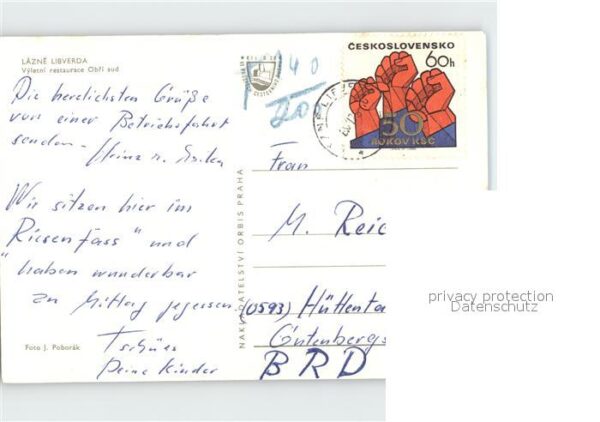 LÁZNĚ LIBVERDA
Výletní restaurace Obří sud
Die herzlichsten Grüße
von einer Betriebsfahrt
senden
Heinz u.
Wir sitzen hier im
"Riesenfass" und
haben wunderbar
zu Mittag gegessen
Tschüss
Deine Kinder
Foto J. Poborák
NAKLADATELSTVÍ ORBIS PRAHA
40
20
ČESKOSLOVENSKO
60h
50
ROKOV KSČ
Frau
M. Reic
(0593) Hüttenta
Gutenbergs
BRD
privacy protection
Datenschutz